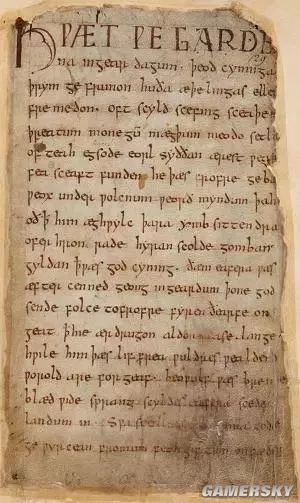 HǷÆT ǷE GARDE
na ingear dagum. þeod cyninga
þrym ge frunon huða æþelingas elle
fremedon. oft scyld scefing sceaþe
þreatum monegū mægþum meodo setla
of teah egsode eorl syððan ærest ƿear
fea sceaft funden he þæs frofre geba
ƿeox under ƿolcnum ƿeorð myndum þah
oð þ him æghƿylc þara ymb sittendra
ofer hron rade hyran scolde gomban
gyldan þ ƿæs god cyning. ðæm eafera ƿæs
æfter cenned geong ingeardum þone god
sende folce tofrofre fyren ðearfe on
geat þ hie ær drugon aldor ase. lange
hƿile him þæs lif frea ƿuldres ƿealdend
ƿorold are for geaf. beoƿulf ƿæs breme
blæd ƿide sprang scyldes eafera scede
landum in. Sƿa sceal gode
ge ƿyrcean fromum feoh giftum on fæder
GAMERSKY